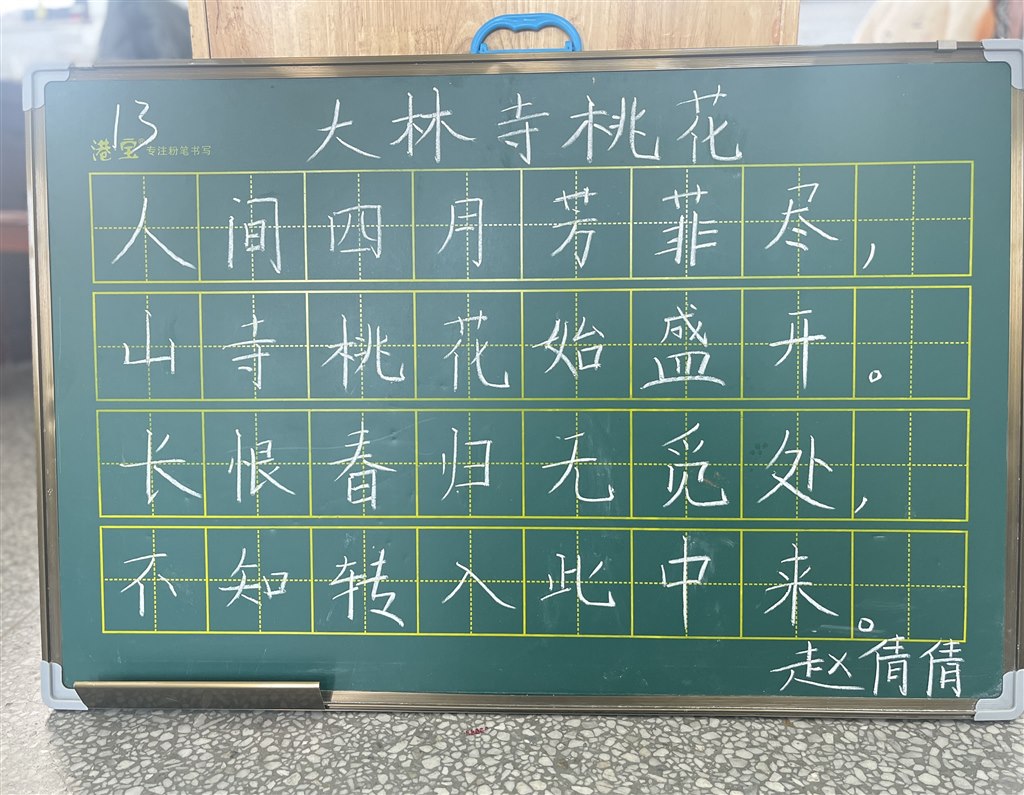 13 大林寺桃花
港宝 专注粉笔书写
人间四月芳菲尽，
山寺桃花始盛开。
长恨春归无觅处，
不知转入此中来。
赵倩倩